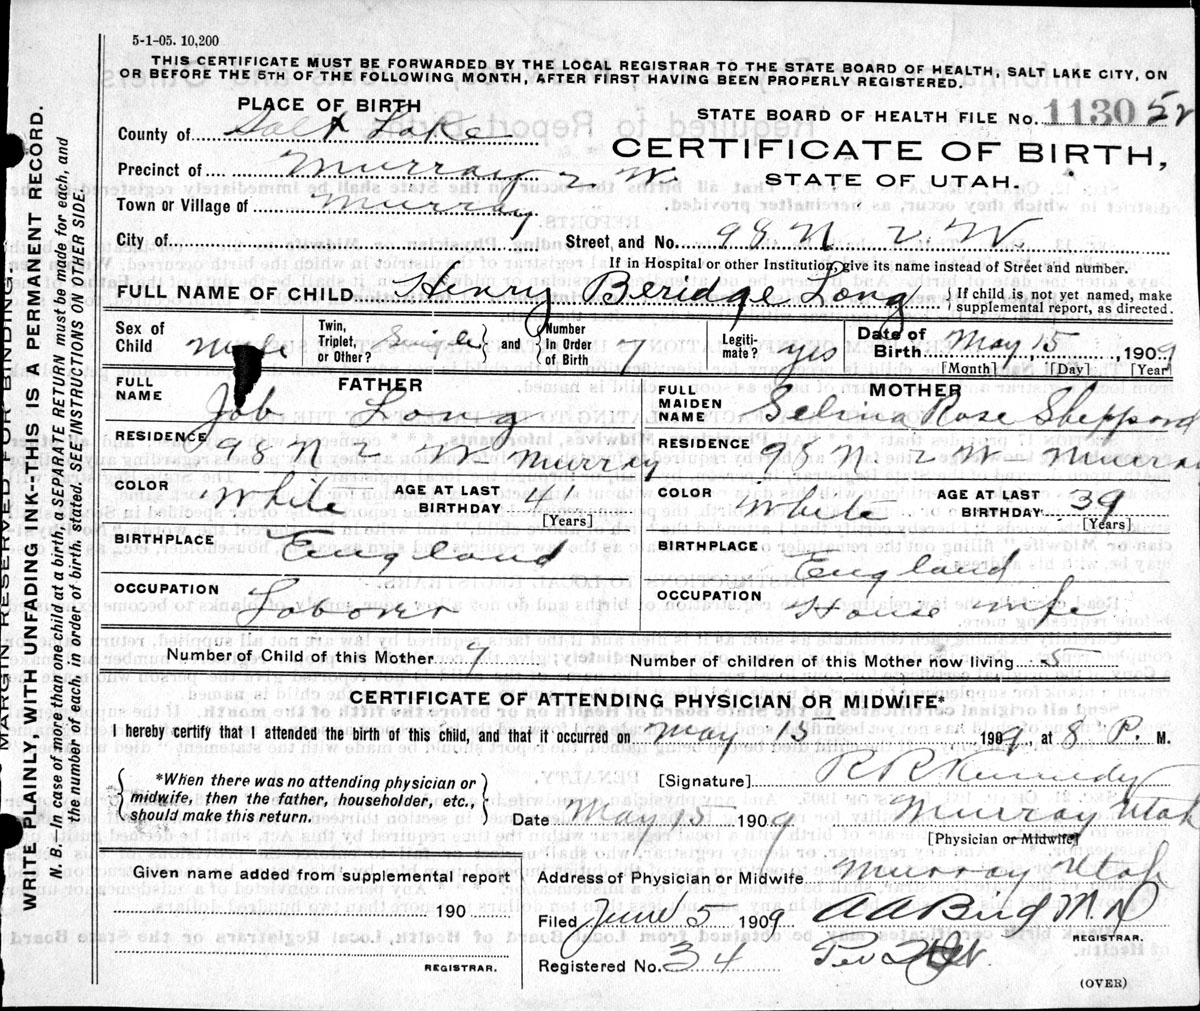 5-1-05. 10,200
THIS CERTIFICATE MUST BE FORWARDED BY THE LOCAL REGISTRAR TO THE STATE BOARD OF HEALTH, SALT LAKE CITY, ON
OR BEFORE THE 5TH OF THE FOLLOWING MONTH, AFTER FIRST HAVING BEEN PROPERLY REGISTERED.
PLACE OF BIRTH
County of Salt Lake
Precinct of Murray 2 W.
Town or Village of Murray
City of
STATE BOARD OF HEALTH FILE No. 11305
CERTIFICATE OF BIRTH,
STATE OF UTAH.
Street, and No. 98 N 2 W
If in Hospital or other Institution, give its name instead of Street and number.
FULL NAME OF CHILD Henry Beridge Long { If child is not yet named, make
supplemental report, as directed.
Sex of Child Male
Twin, Triplet, or Other? Single } and { Number In Order of Birth 7
Legiti- mate? yes
Date of Birth May 15, 1909
[Month] [Day] [Year]
FATHER
FULL NAME Job Long
RESIDENCE 98 N 2 W Murray
COLOR White AGE AT LAST BIRTHDAY
[Years]
BIRTHPLACE England
OCCUPATION Laborer
MOTHER
FULL MAIDEN NAME Selina Rose Sheppard
RESIDENCE 98 N 2 W Murray
COLOR White AGE AT LAST BIRTHDAY 39
[Years]
BIRTHPLACE England
OCCUPATION House wife
Number of Child of this Mother 7
Number of children of this Mother now living 5
CERTIFICATE OF ATTENDING PHYSICIAN OR MIDWIFE*
I hereby certify that I attended the birth of this child, and that it occurred on May 15 1909, at 8 P. M.
*When there was no attending physician or
midwife, then the father, householder, etc.,
should make this return.
[Signature] R R Kennedy
Date May 15 1909 Murray Utah
[Physician or Midwife]
Given name added from supplemental report
190
REGISTRAR.
Address of Physician or Midwife Murray Utah
Filed June 5 1909 A A Bird M.D
REGISTRAR.
Registered No. 34 Per
(OVER)
MARGIN RESERVED FOR BINDING.
WRITE PLAINLY WITH UNFADING INK--THIS IS A PERMANENT RECORD.
N. B. In case of more than one child at a birth, a SEPARATE RETURN must be made for each, and
the number of each, in order of birth, stated. SEE INSTRUCTIONS ON OTHER SIDE.